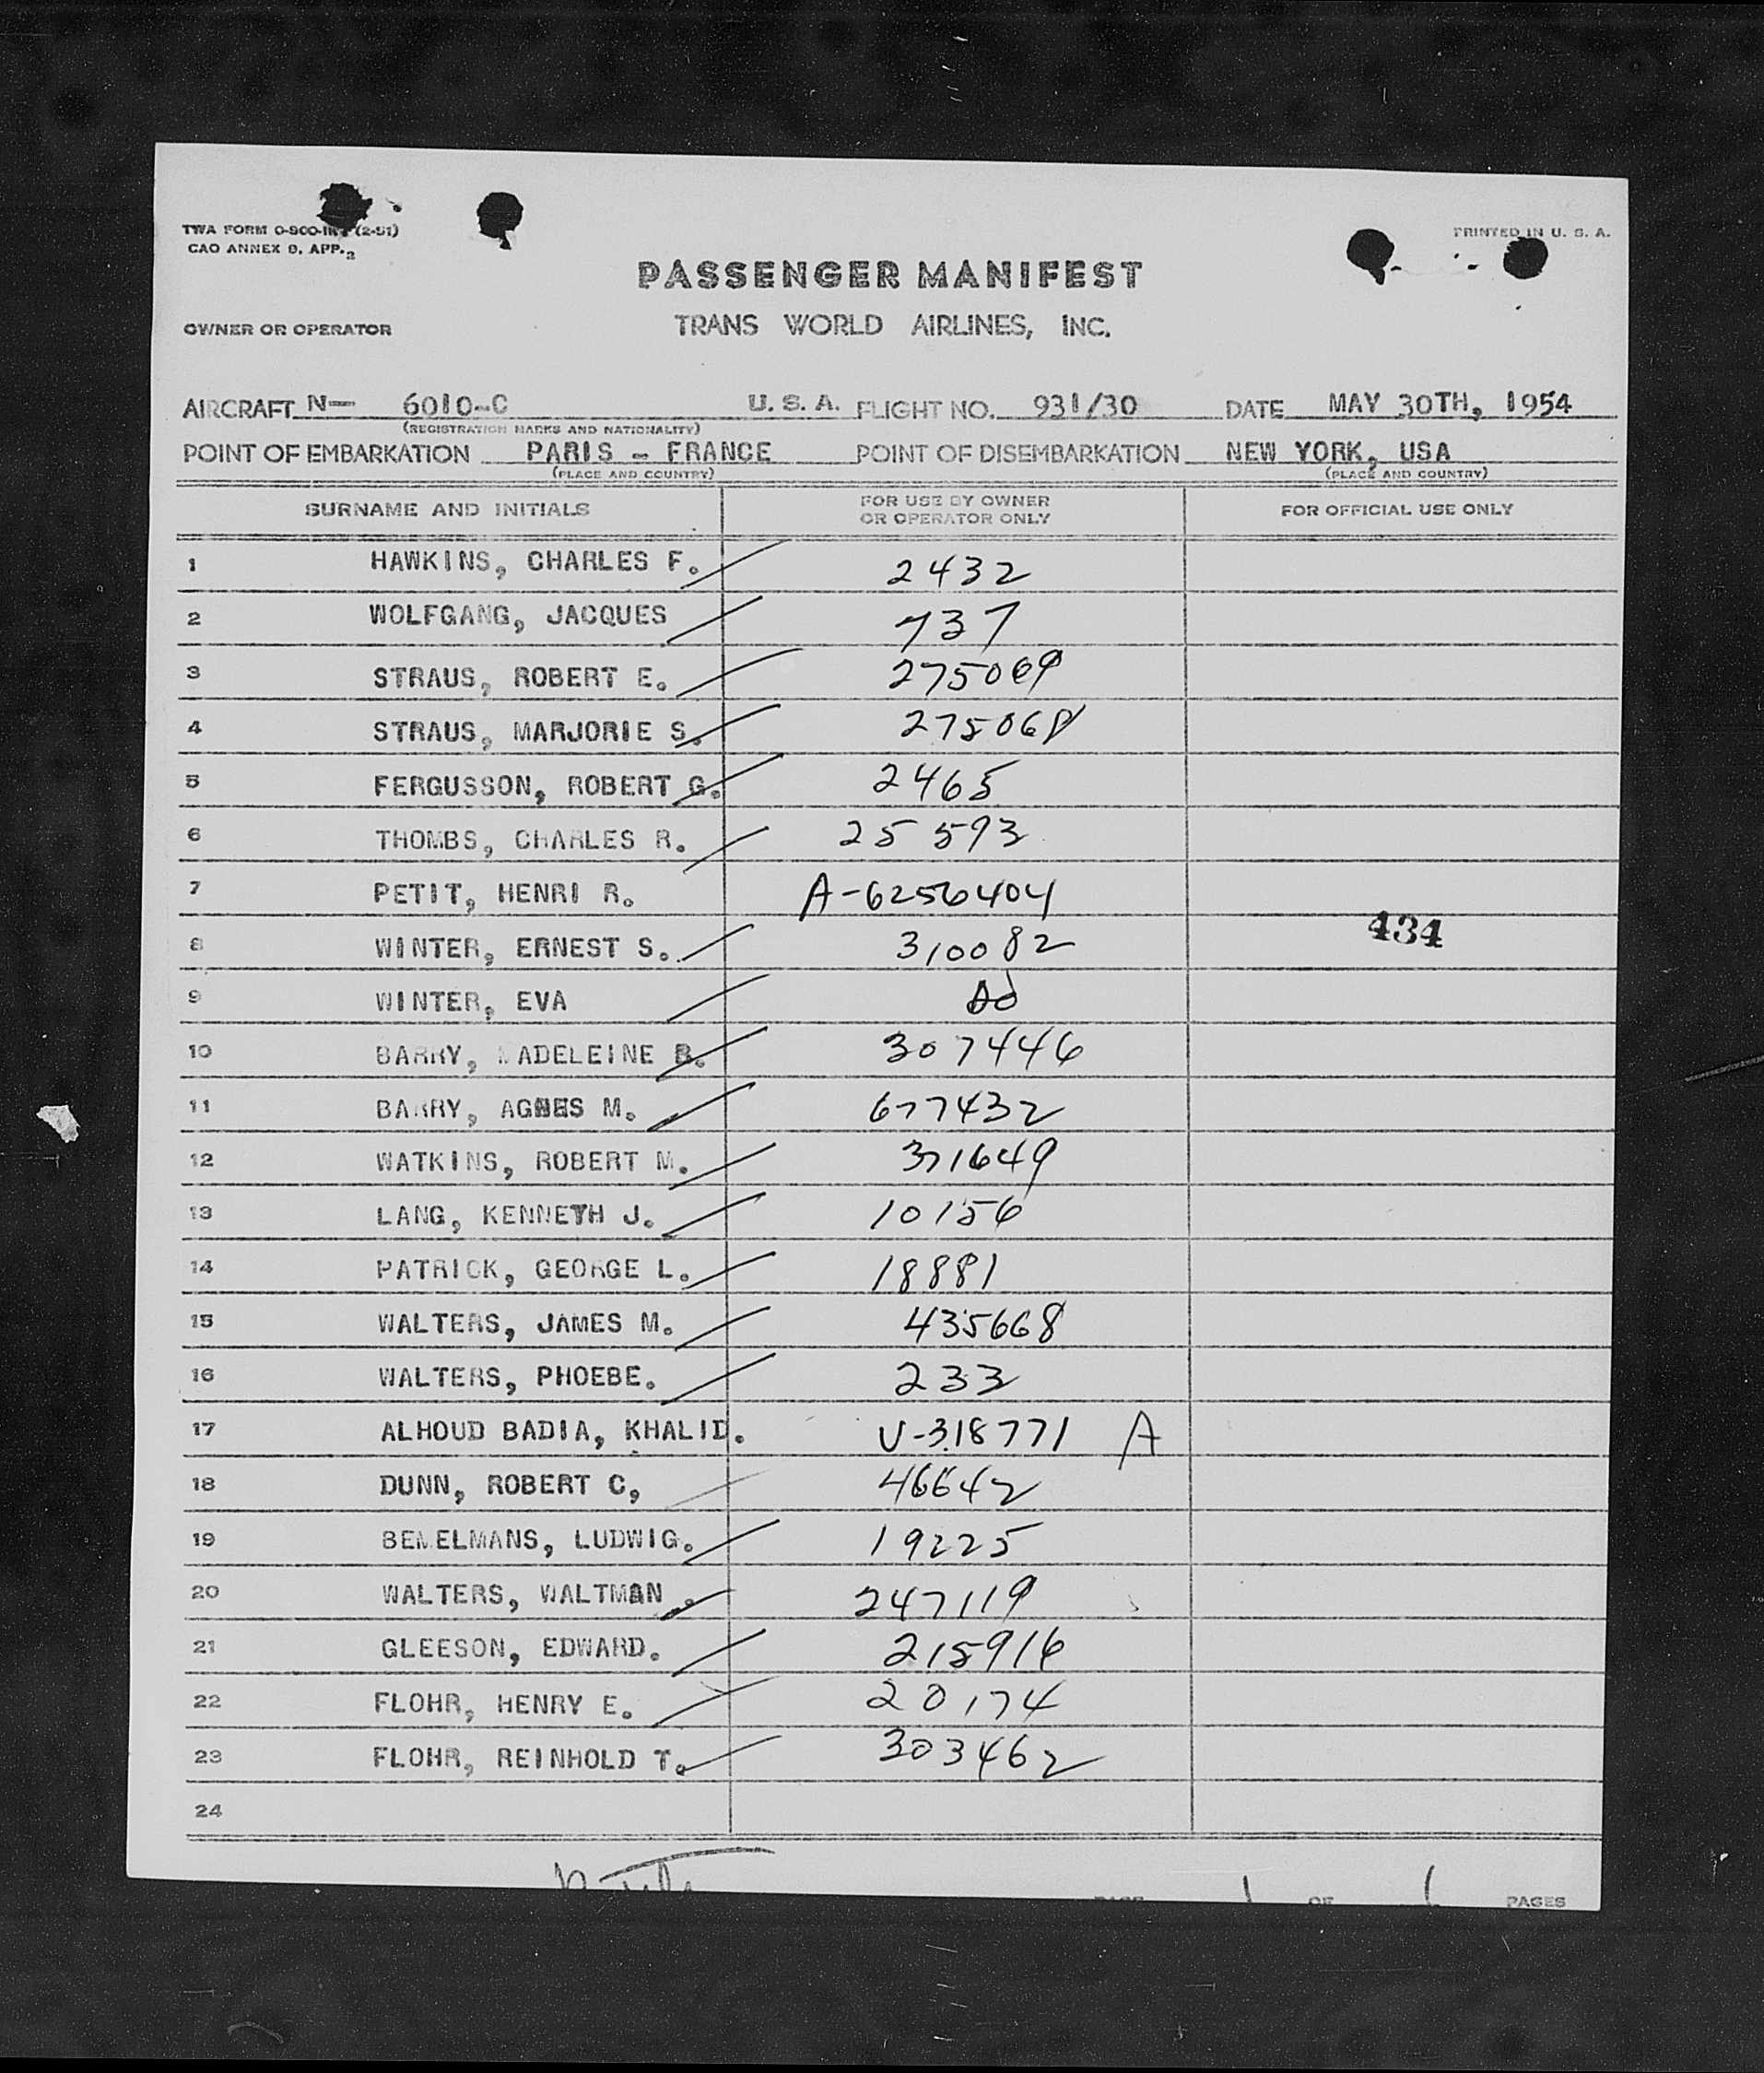 TWA FORM 0-900-INT (2-51)
CAO ANNEX 9, APP. 2
PRINTED IN U. S. A.
PASSENGER MANIFEST
OWNER OR OPERATOR TRANS WORLD AIRLINES, INC.
AIRCRAFT N— 6010-C U. S. A. FLIGHT NO. 931/30 DATE MAY 30TH, 1954
(REGISTRATION MARKS AND NATIONALITY)
POINT OF EMBARKATION PARIS - FRANCE POINT OF DISEMBARKATION NEW YORK, USA
(PLACE AND COUNTRY) (PLACE AND COUNTRY)
SURNAME AND INITIALS FOR USE BY OWNER OR OPERATOR ONLY FOR OFFICIAL USE ONLY
1 HAWKINS, CHARLES F. 2432
2 WOLFGANG, JACQUES 737
3 STRAUS, ROBERT E. 275069
4 STRAUS, MARJORIE S. 275068
5 FERGUSSON, ROBERT G. 2465
6 THOMBS, CHARLES R. 25593
7 PETIT, HENRI R. A-6256404
434
8 WINTER, ERNEST S. 310082
9 WINTER, EVA do
10 BARRY, MADELEINE B. 307446
11 BARRY, AGNES M. 677432
12 WATKINS, ROBERT M. 371649
13 LANG, KENNETH J. 10156
14 PATRICK, GEORGE L. 18881
15 WALTERS, JAMES M. 435668
16 WALTERS, PHOEBE. 233
17 ALHOUD BADIA, KHALID. V-318771 A
18 DUNN, ROBERT C, 46642
19 BEMELMANS, LUDWIG. 19225
20 WALTERS, WALTMAN . 247119
21 GLEESON, EDWARD. 215916
22 FLOHR, HENRY E. 20174
23 FLOHR, REINHOLD T. 303462
24
PAGE 1 OF PAGES